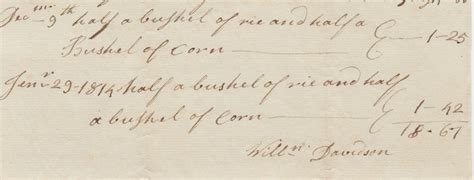 9th half a bushel of rie and half a
Bushel of Corn 1-25
Jenr 29-1814 half a bushel of rie and half
a bushel of Corn 1-42
18-67
Willm Davidson